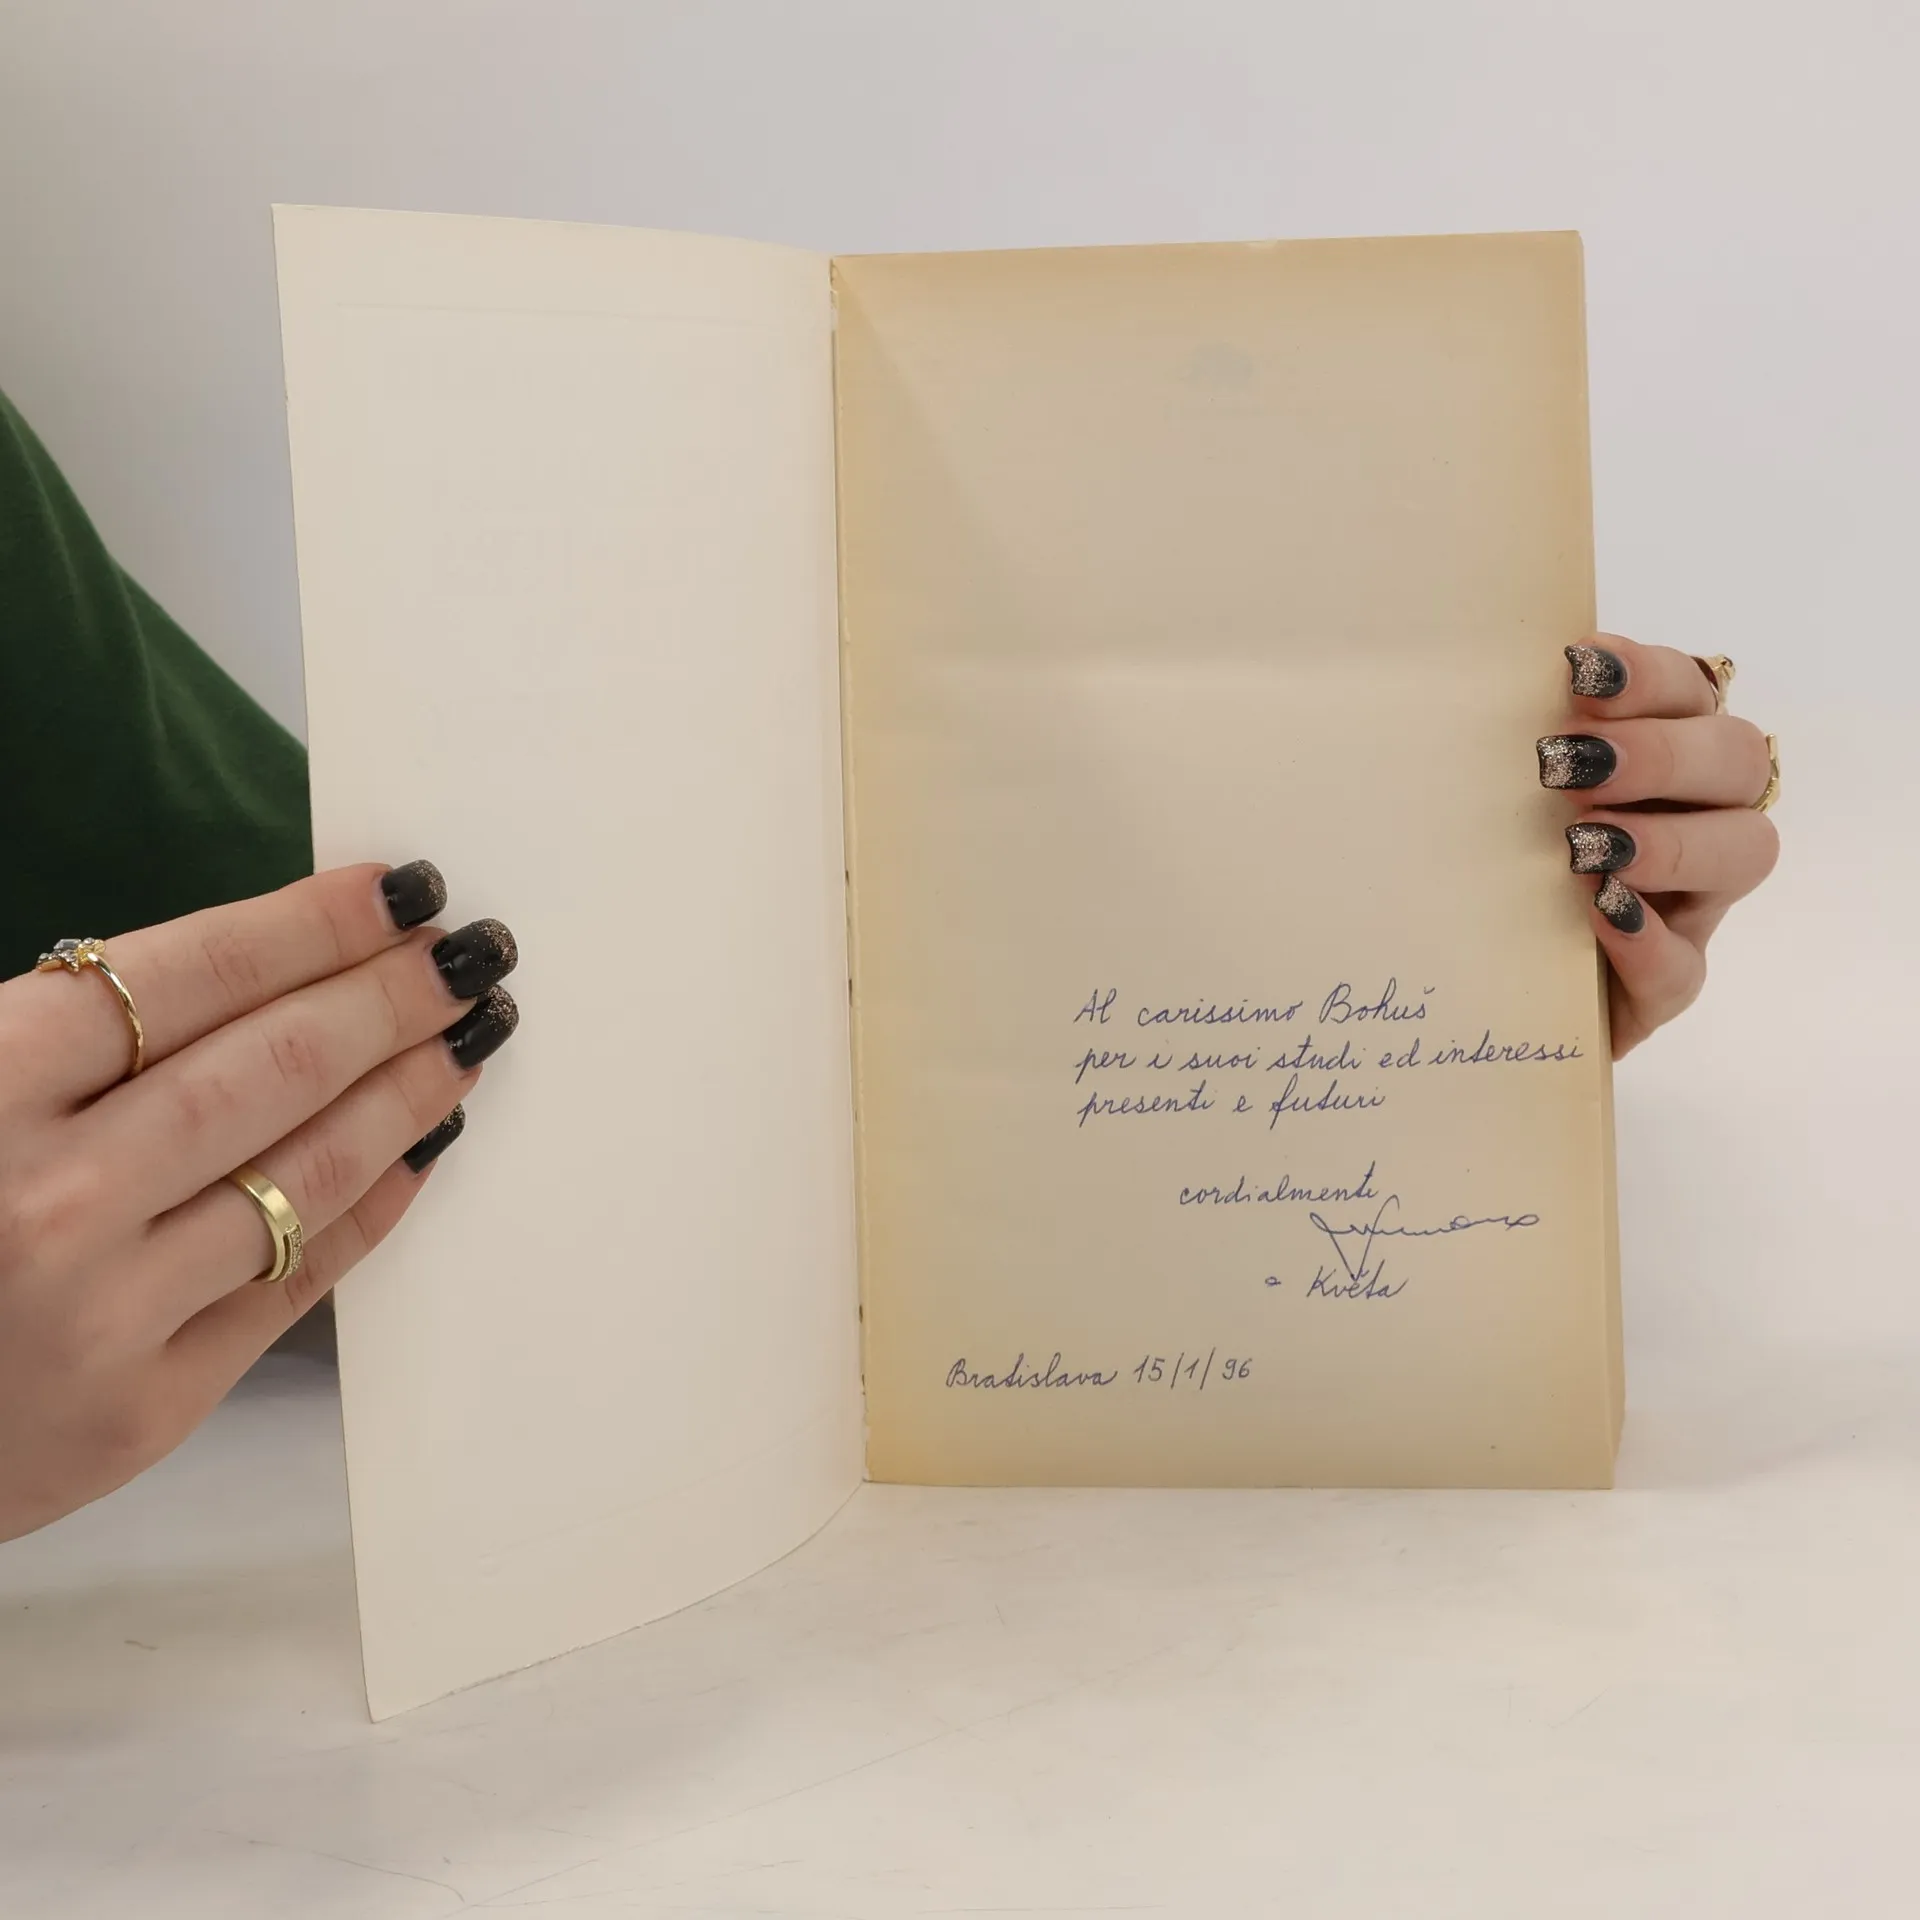 Al carissimo Bohuš
per i suoi studi ed interessi
presenti e futuri
cordialmente
a Květa
Bratislava 15/1/96